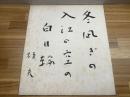 冬凪ぎの
入江の空の
白日輪